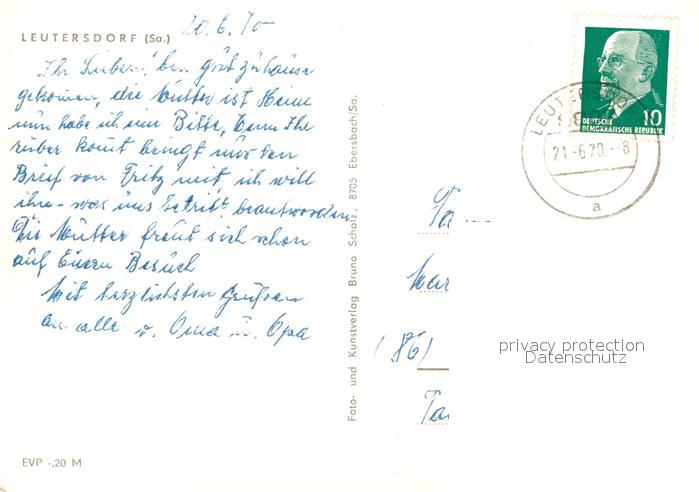 LEUTERSDORF (Sa.)
20.6.70
Ihr Lieben, bin gut zuhause
gekommen, die Mutter ist Heim
nun habe ich eine Bitte, Wenn Ihr
rüber komt bringt mir den
Brief von Fritz mit, ich will
ihn - was uns betrift, beantworden
Die Mutter freut sich schon
auf Euern Besuch
Mit herzlichsten Grüßen
an alle v. Oma u. Opa
EVP -,20 M
Foto- und Kunstverlag Bruno Scholz, 8705 Ebersbach/Sa.
10
DEUTSCHE
DEMOKRATISCHE REPUBLIK
LEUTERSDORF
21.-6.70.-8
a
(86)
privacy protection
Datenschutz